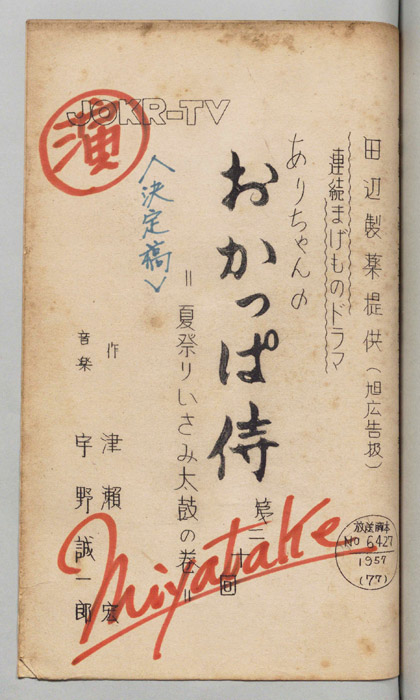 JOKR-TV
演
田辺製薬提供(旭広告扱)
連続まげものドラマ
ありちゃんの
おかっぱ侍
第三十回
=夏祭りいさみ太鼓の巻=
<決定稿>
作 津瀬 宏
音楽 宇野誠一郎
Miyatake
放送台本
No 6427
1957
(77)